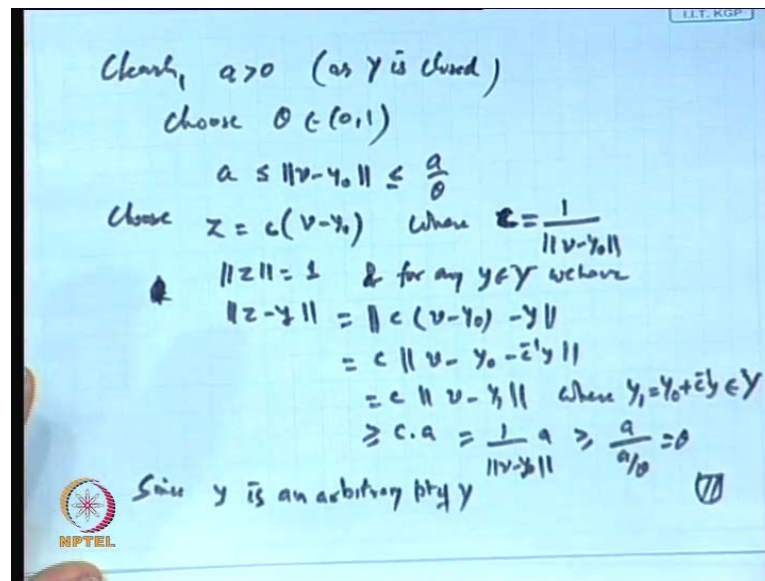 I.I.T. KGP
Clearly, a>0 (as Y is closed)
choose θ ∈ (0,1)
a ≤ ||v-y₀|| ≤ a/θ
Choose z = c(v-y₀) where c = 1/||v-y₀||
||z|| = 1 & for any y∈Y we have
||z-y|| = ||c(v-y₀) -y||
= c ||v- y₀ -c⁻¹y||
= c ||v- y₁|| where y₁=y₀+c⁻¹y ∈ Y
≥ c.a = 1/||v-y₀|| a ≥ a/a/θ =θ
Since y is an arbitrary pt of Y
NPTEL